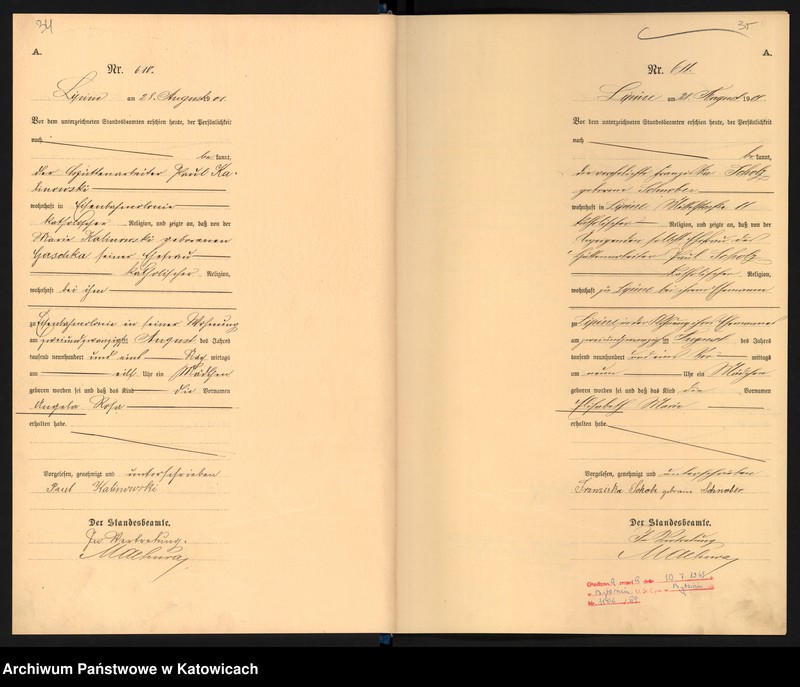 34
A.
Nr. 610.
Lipine am 28. August 1901.
Vor dem unterzeichneten Standesbeamten erschien heute, der Persönlichkeit
nach
be kannt,
der Hüttenarbeiter Paul Ka-
linowski
wohnhaft in Eisenbahnkolonie
katholischer Religion, und zeigte an, daß von der
Marie Kalinowski geborenen
seiner Ehefrau
katholischer Religion,
wohnhaft bei ihm
zu Eisenbahnkolonie in seiner Wohnung
am zweiundzwanzigsten August des Jahres
tausend neunhundert und eins Nach mittags
um elf Uhr ein Mädchen
geboren worden sei und daß das Kind die Vornamen
Angela Rosa
erhalten habe.
Vorgelesen, genehmigt und unterschrieben
Paul Kalinowski
Der Standesbeamte.
In Vertretung.
Machura
35
A.
Nr. 611.
Lipine am 28. August 1901.
Vor dem unterzeichneten Standesbeamten erschien heute, der Persönlichkeit
nach
be kannt,
die verehelichte Franziska Scholz
geborene Schnober
wohnhaft in Lipine Mittelstraße 11
katholischer Religion, und zeigte an, daß von der
Ehefrau des
Hüttenarbeiter Paul Scholz
katholischer Religion,
wohnhaft zu Lipine bei ihrem Ehemann
zu Lipine in der Wohnung ihres Ehemannes
am August des Jahres
tausend neunhundert und eins Vor mittags
um neun Uhr ein Mädchen
geboren worden sei und daß das Kind die Vornamen
Elisabeth Marie
erhalten habe.
Vorgelesen, genehmigt und unterschrieben
Franziska Scholz geborene Schnober
Der Standesbeamte.
In Vertretung
Machura
Archiwum Państwowe w Katowicach